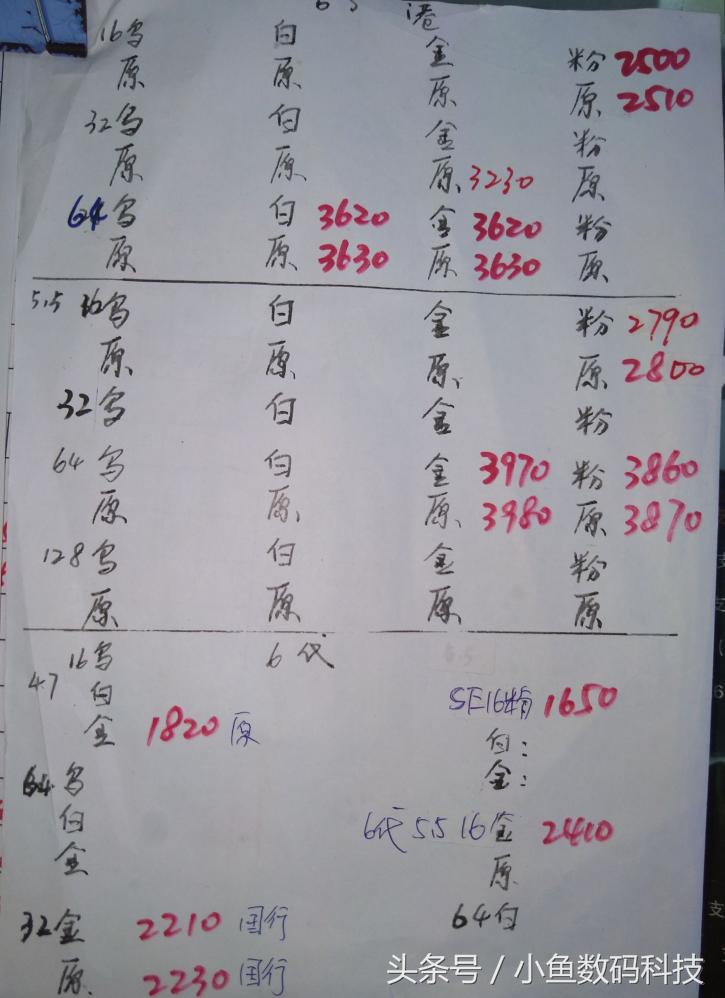 6S 港
16乌 白 金 粉 2500
原 原 原 原 2510
32乌 白 金 粉
原 原 原 3230 原
64乌 白 3620 金 3620 粉
原 原 3630 原 3630 原
5.5 16乌 白 金 粉 2790
原 原 原 原 2800
32乌 白 金 粉
64乌 白 金 3970 粉 3860
原 原 原 3980 原 3870
128乌 白 金 粉
原 原 原 原
6代
4.7 16乌
白
金 1820 原
SE16精 1650
白:
金:
64乌
白
金
6代 5.5 16金 2410
原
64白
32金 2210 国行
原 2230 国行
头条号 / 小鱼数码科技